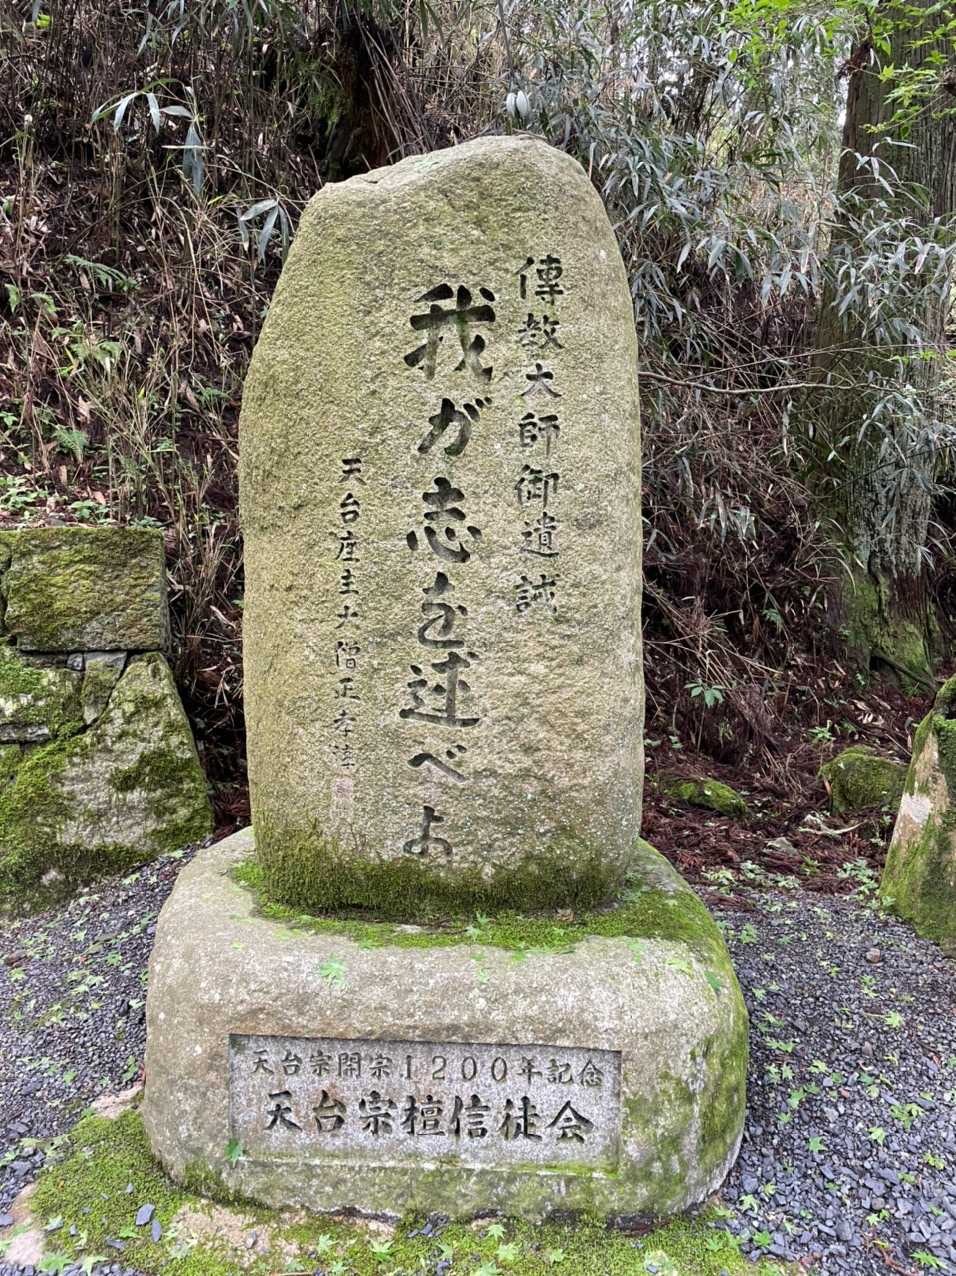 傳教大師御遺誡
我が志を述べよ
天台座主大僧正孝淳
天台宗開宗1200年記念
天台宗檀信徒会